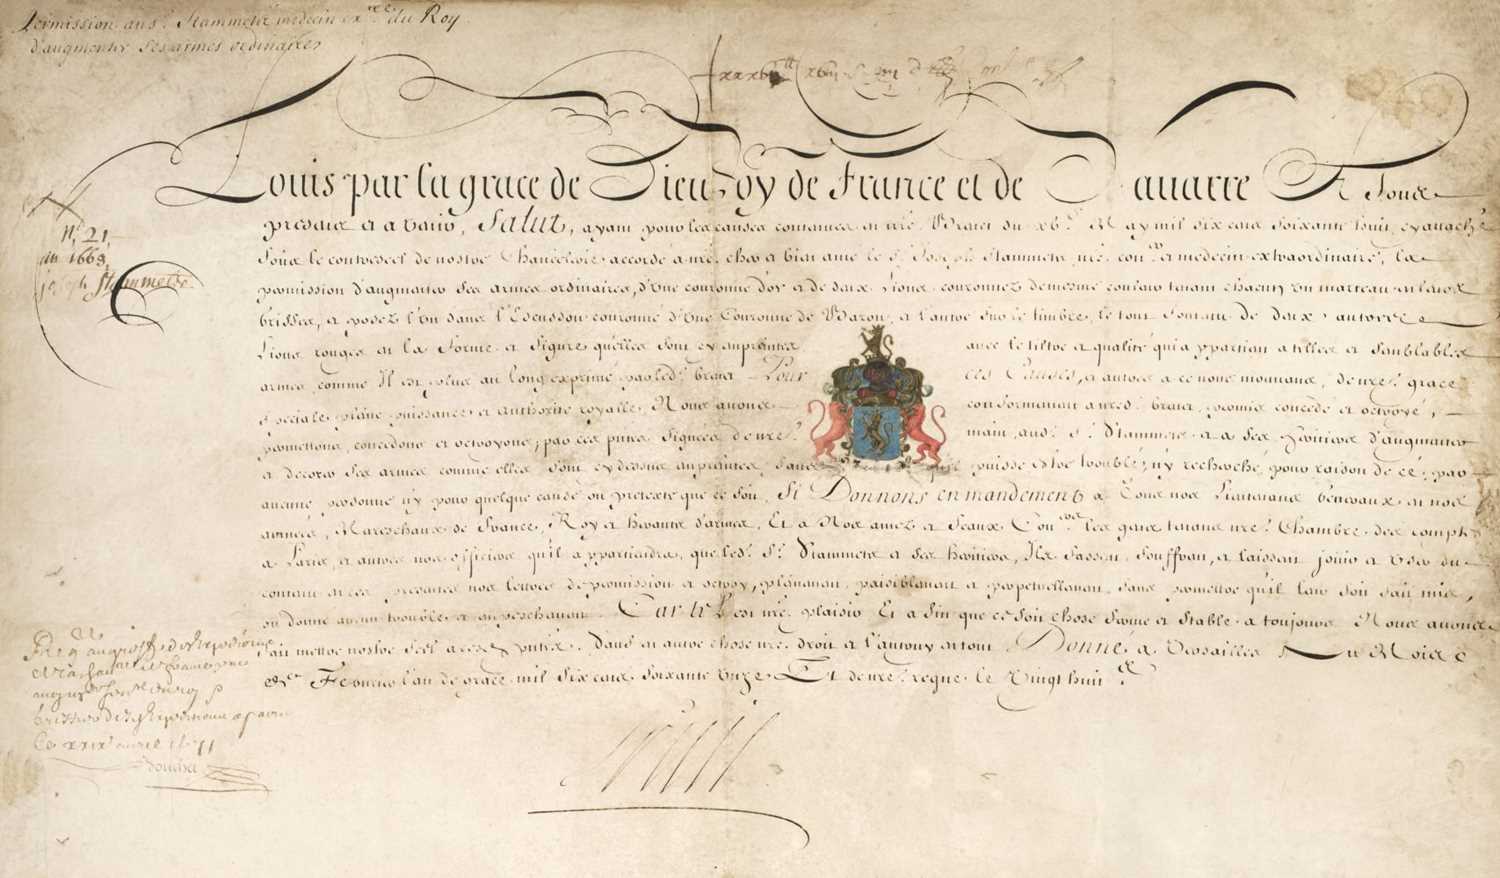 Permission au sr. Stammette medecin exre. du Roy
d'augmenter ses armes ordinaires
Louis par la grace de Dieu Roy de France et de Navarre A Tous
presens et a venir, Salut, ayant pour les causes contenues en nre. Brevet du xbe. May mil six cens soixante huit, cy attaché
soubs le contrescel de nostre Chancelerie accordé a nre. cher et bien amé le sr. Joseph Stammete, nre. conr. et medecin extraordinaire, la
permission d'augmenter ses armes ordinaires, d'une couronne d'or et de deux Lions couronnez de mesme couleur tenant chacun un marteau en leurs
brisses, et posez l'un dans l'Escusson couronné d'une Couronne de Baron, et l'autre sur le timbre, le tout soutenu de deux autres
Lions rouges en la forme et figure qu'elles sont cy empraintes avec le tiltre et qualité qui appartient a telles et semblables
armes comme Il est plus au long exprimé par led. brevet Pour ces Causes, et autres a ce nous mouvans, de nre. grace
speciale, pleine puissance et authorité royalle, Nous avons conformement a nred. brevet, permis concedé et octroyé,
permettons, concedons et octroyons, par ces pntes. signées de nre. main, aud. sr. Stammete et a ses heritiers d'augmenter
et decorer ses armes comme elles sont cy dessus empraintes, sans puisse estre troublé, ny recherché, pour raison de ce, par
aucune personne ny pour quelque cause ou pretexte que ce soit, Si Donnons en mandement a Tous nos Lieutenans Generaux en nos
armées, Mareschaux de France, Roy et herauts d'armes, Et a Nos amez et feaux Coners. les gens tenans nre. Chambre des comptes
a Paris, et autres nos officiers qu'il appartiendra, que led. sr. Stammete et ses heritiers, Ils fassent, souffrent, et laissent jouir et user du
contenu en ces presentes nos lettres de permission et octroy, plainement, paisiblement et perpetuellement, sans permettre qu'il leur soit fait mis,
ou donné aucun trouble et empeschement. Car tel est nre. plaisir Et a fin que ce soit chose ferme et stable a toujours Nous avons
fait mettre nostre scel a cesd. pntes. Sauf en autre chose nre. droit et l'autruy en tout Donné a Versailles Au Mois
de Fevrier l'an de grace mil six cens soixante unze Et de nre. regne le vingt huit e.
Louis
No. 21,
an 1668,
joseph Stammette
le xxix avril 1671